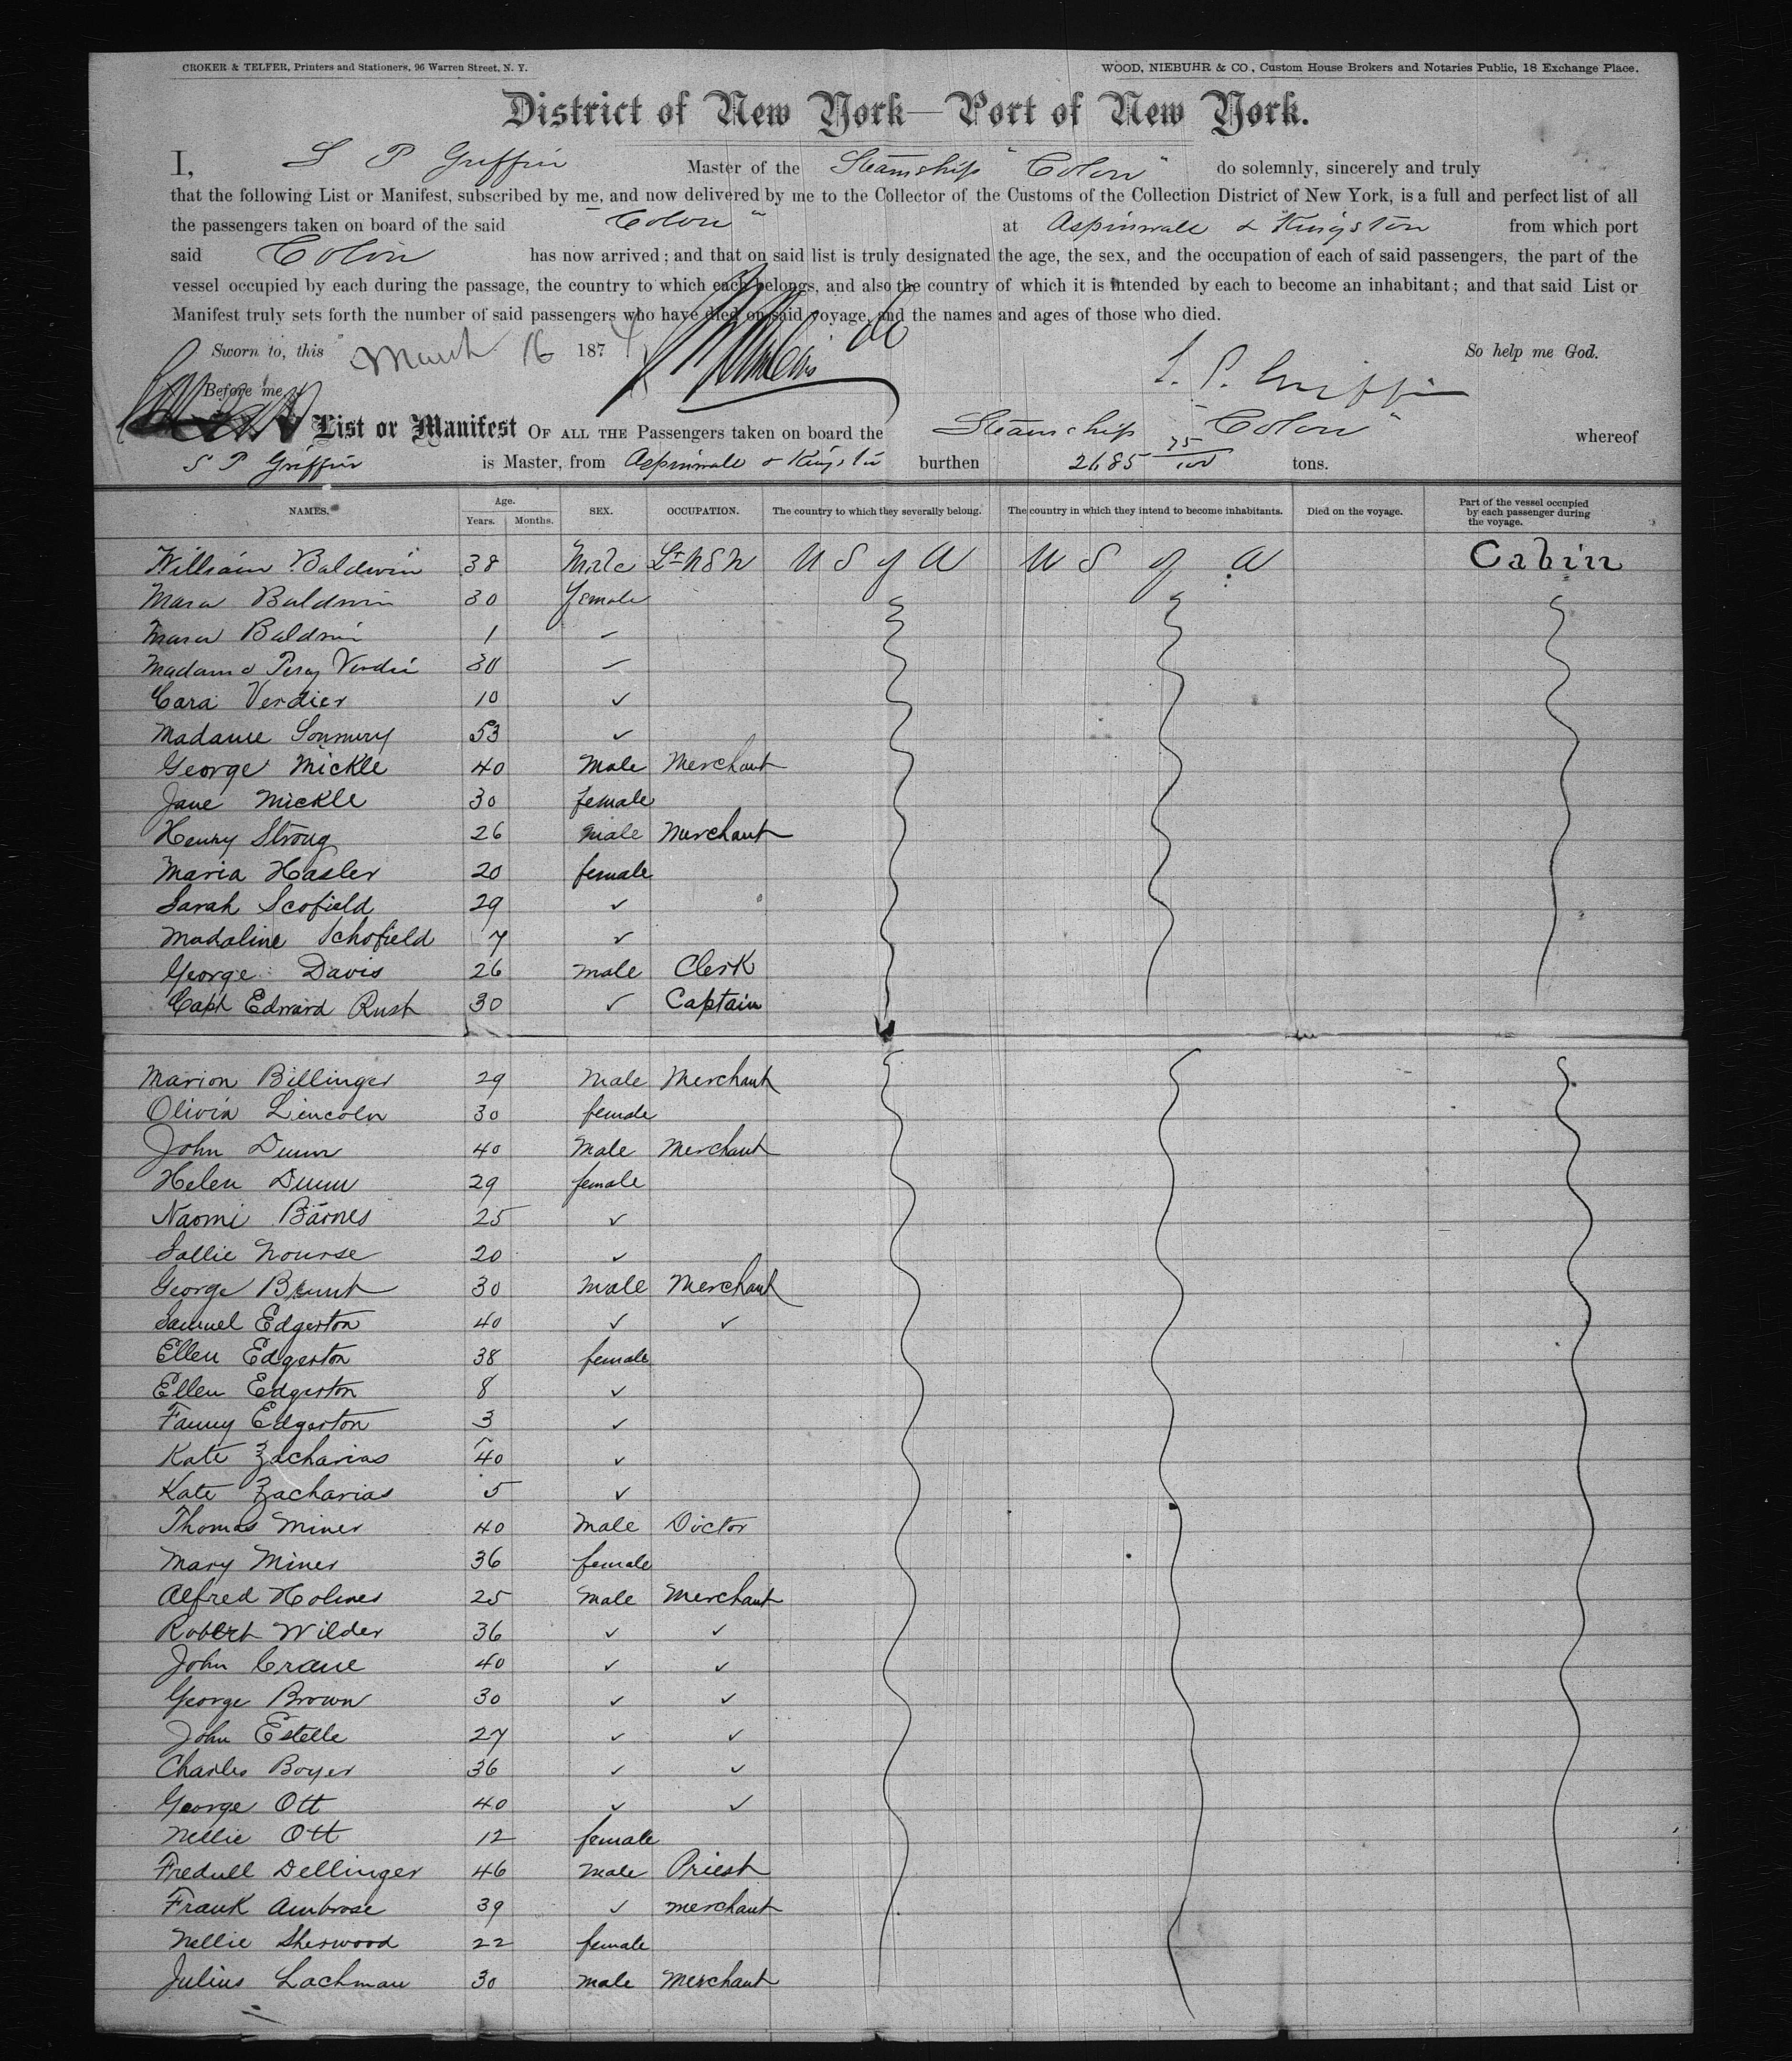 CROKER & TELFER, Printers and Stationers, 96 Warren Street, N. Y. WOOD, NIEBUHR & CO., Custom House Brokers and Notaries Public, 18 Exchange Place.
District of New York—Port of New York.
I, S P Griffin Master of the Steamship "Colon" do solemnly, sincerely and truly
that the following List or Manifest, subscribed by me, and now delivered by me to the Collector of the Customs of the Collection District of New York, is a full and perfect list of all
the passengers taken on board of the said "Colon" at Aspinwall & Kingston from which port
said Colon has now arrived; and that on said list is truly designated the age, the sex, and the occupation of each of said passengers, the part of the
vessel occupied by each during the passage, the country to which each belongs, and also the country of which it is intended by each to become an inhabitant; and that said List or
Manifest truly sets forth the number of said passengers who have died on said voyage, and the names and ages of those who died.
Sworn to, this March 16 187 So help me God.
Before me, S. P. Griffin
List or Manifest OF ALL THE Passengers taken on board the Steamship "Colon" whereof
S P Griffin is Master, from Aspinwall & Kingston burthen 2685 75/100 tons.
NAMES. Age. Years. Months. SEX. OCCUPATION. The country to which they severally belong. The country in which they intend to become inhabitants. Died on the voyage. Part of the vessel occupied by each passenger during the voyage.
William Baldwin 38 Male Lt USN U S of A U S of A Cabin
Mara Baldwin 30 female
Mara Baldwin 1 –
Madame Verdie 30 –
Cara Verdier 10 ✓
Madame 53 ✓
George Mickle 40 Male Merchant
Jane Mickle 30 female
Henry Strong 26 male Merchant
Maria Hasler 20 female
Sarah Scofield 29 ✓
Madaline Schofield 7 ✓
George Davis 26 male Clerk
Capt Edward Rush 30 ✓ Captain
Marion Billinger 29 Male Merchant
Olivia Lincoln 30 female
John Dunn 40 Male Merchant
Helen Dunn 29 female
Naomi Barnes 25 ✓
Sallie Nourse 20 ✓
George 30 Male Merchant
Samuel Edgerton 40 ✓ ✓
Ellen Edgerton 38 female
Ellen Edgerton 8 ✓
Fanny Edgerton 3 ✓
Kate Zacharias 40 ✓
Kate Zacharias 5 ✓
Thomas Miner 40 Male Doctor
Mary Miner 36 female
Alfred Holmes 25 Male Merchant
Robert Wilder 36 ✓ ✓
John Crane 40 ✓ ✓
George Brown 30 ✓ ✓
John Estelle 27 ✓ ✓
Charles Boyer 36 ✓ ✓
George Ott 40 ✓ ✓
Nellie Ott 12 female
Fredull Dellinger 46 Male Priest
Frank Ambrose 39 ✓ merchant
Nellie Sherwood 22 female
Julius Lachman 30 male Merchant